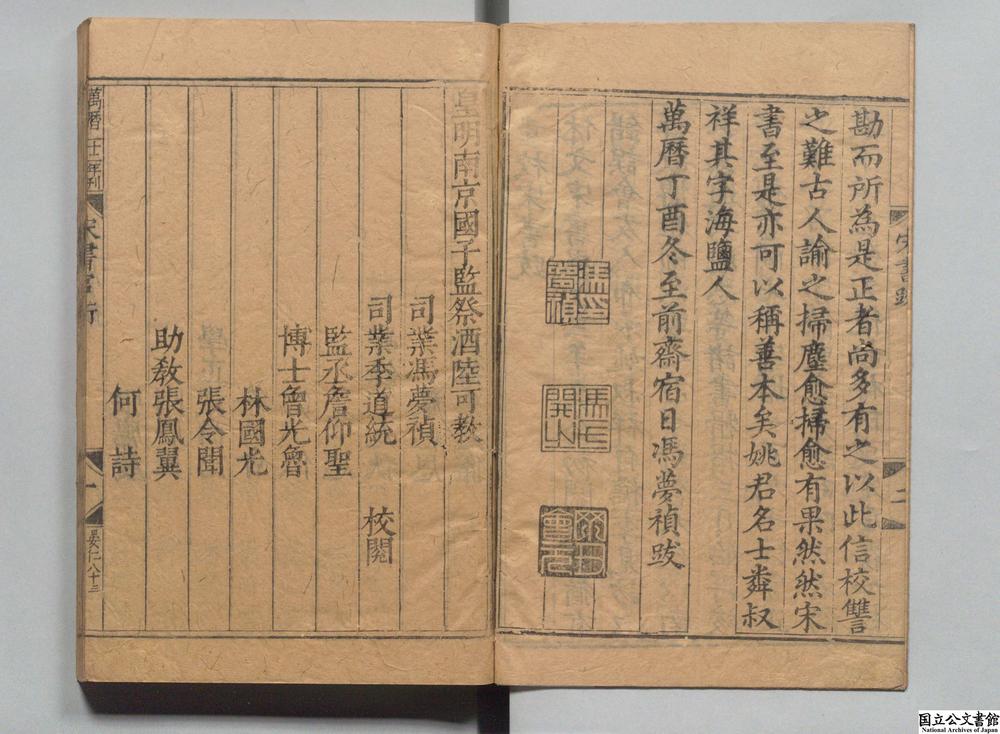 勘而所為是正者尚多有之以此信校讐
之難古人諭之掃塵愈掃愈有果然然宋
書至是亦可以稱善本矣姚君名士粦叔
祥其字海鹽人
萬曆丁酉冬至前齋宿日馮夢禎跋
宋書跋
二
皇明南京國子監祭酒陸可教
司業馮夢禎
司業季道統 校閱
監丞詹仰聖
博士魯光魯
林國光
張令聞
助敎張鳳翼
何詩
萬曆廿二年刊
宋書官銜
一
晏仁八十三
国立公文書館
National Archives of Japan